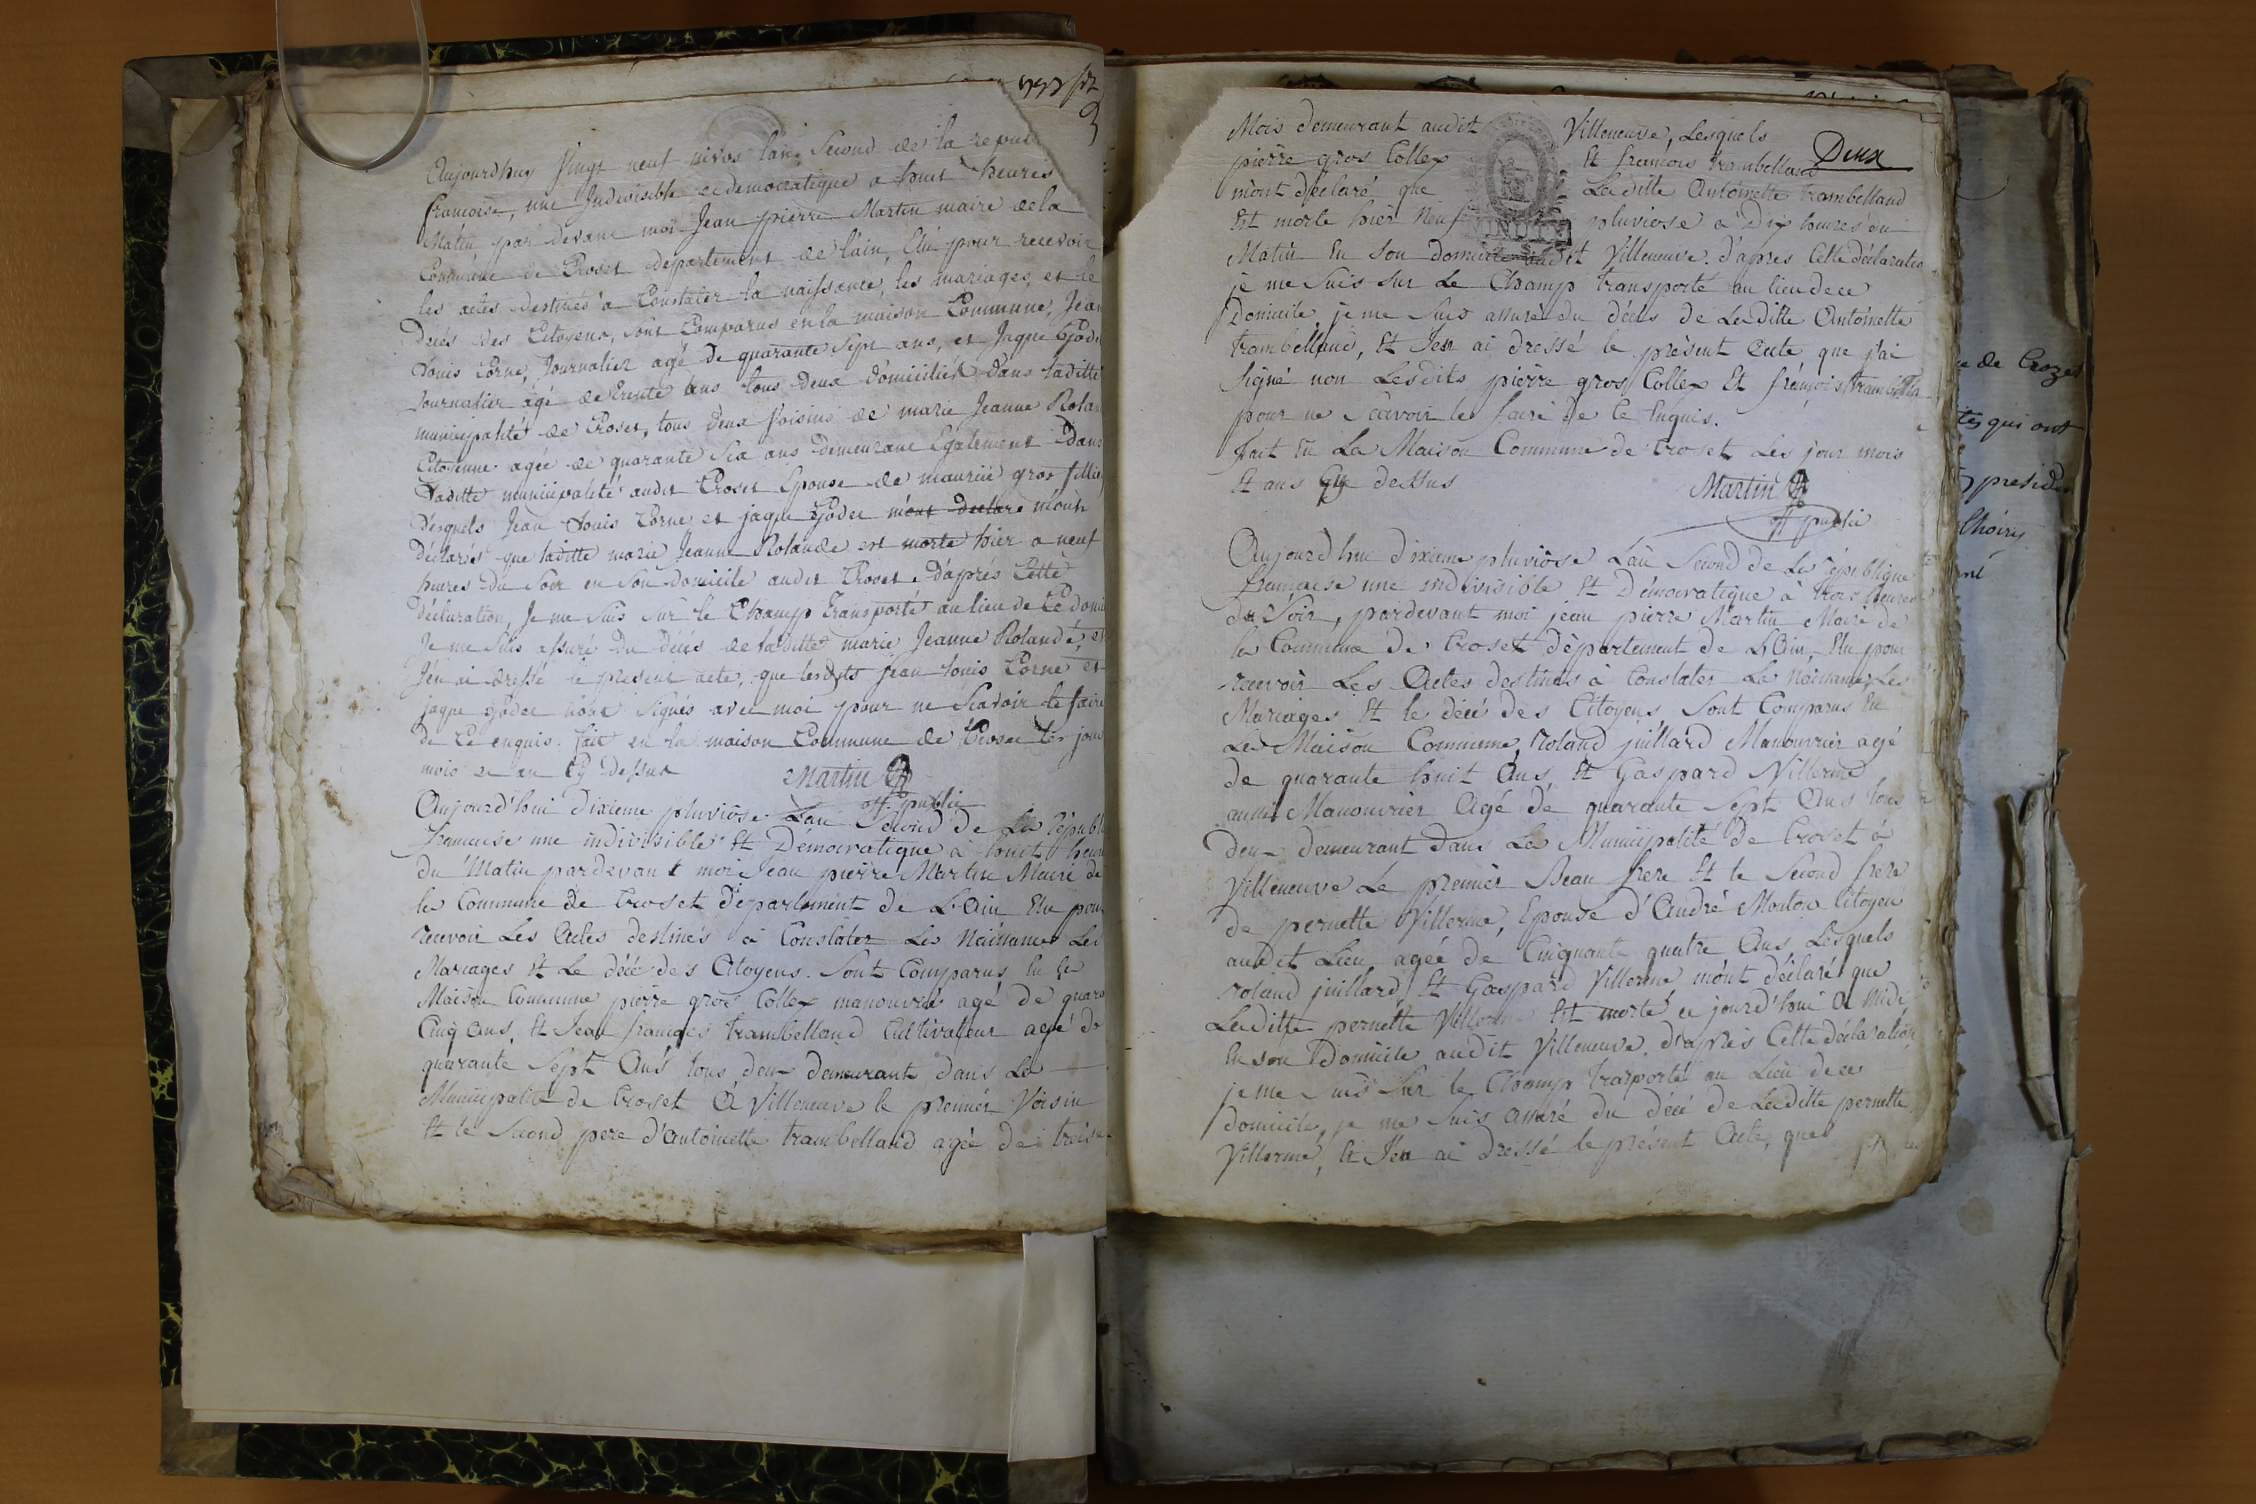 Aujourdhuy Vingt neuf nivos lan Second de la repu
francoise, une Indivisible et democratique a huit heures
Matin par devant moi Jean pierre Martin maire de la
Commune de Croset departement de l'ain, Elû pour recevoir
les actes destinés à Constater la naissance, les mariages, et le
Decés des Citoyens, sont Comparus en la maison Commune, Jean
Louis Corne, Journalier agé de quarante Sept ans, et Jaque Gode
Journalier agé de trente ans tous deux domiciliés dans laditte
municipalité de Croset, tous deux Voisins de marie Jeanne Rolan
Citoyenne agée de quarante Six ans demeurant Egalement dans
Laditte municipalité audit Croset Epouse de maurice gros fillie
Desquels Jean Louis Corne et jaque Godet mont declaré m'ont
déclarés que laditte marie Jeanne Rolande est morte hier a neuf
heures du Soir en Son domicile audit Croset. d'aprés Cette
déclaration, Je me Suis Sur le Champ transporté au lieu de Ce domi
Je me Suis assuré du Décés de laditte marie Jeanne Rolande, et
J'en ai dressé le present acte, que lesdits Jean Louis Corne et
jaque Godet n'ont Signés avec moi pour ne Scavoir le faire
de Ce enquis. fait en la maison Commune de Croset les jour
mois et an Cy dessus Martin
off. public
Aujourd'hui dixieme pluviôse Lan Second de La Républ
francaise une indivisible Et Démocratique à huit heur
du Matin pardevant moi Jean pierre Martin Maire de
la Commune de Croset département de L'Ain Elu pour
recevoir Les Actes destinés à Constater Les Naissances Les
Mariages Et Le décé des Citoyens. Sont Comparus En la
Maison Commune pierre gros Collex manouvrié agé de quara
Cinq ans, Et Jean françois trambelland Cultivateur agé de
quarante Sept Ans tous deux demeurants dans La
Municipalité de Croset à Villeneuve le premier Voisin
Et le Second pere d'antoinette trambelland agée de treise
Mois demeurant audit Villeneuve, Lesquels
Deux
pierre gros Collex Et francois trambelland
m'ont déclaré que Laditte Antoinette trambelland
Est morte hier Neuf pluviose à Dix heures du
MINUTE
Matin En Son domicile audit Villeneuve. d'apres Cette déclaratio
je me Suis Sur Le Champ transporté au lieu de ce
Domicile, je me Suis assuré du décés de Laditte Antoinette
trambelland, Et J'en ai dressé le présent Acte que j'ai
Signé non Lesdits pierre gros Collex Et françois
pour ne Scavoir le faire de Ce Enquis.
fait En La Maison Commune de Croset Les jour mois
Et ans Cy dessus Martin
off public
Aujourd'hui dixieme pluviôse L'an Second de La République
francaise une indivisible Et Démocratique à trois heures
du Soir, pardevant moi jean pierre Martin Maire de
la Commune de Croset département de L'Ain, Elu pour
recevoir Les Actes destinés à Constater La Naissance, Les
Mariages Et le décé des Citoyens Sont Comparus En
La Maison Commune, Roland juillard Manouvrier agé
de quarante huit Ans, Et Gaspard Villerme
aussi Manouvrier Agé de quarante Sept Ans tous
deux demeurant dans La Municipalité de Croset à
Villeneuve Le premier Beau frere Et le Second frere
de pernette Villerme, Epouse d'André Mouton Citoyen
audit Lieu agée de Cinquante quatre Ans, Lesquels
roland juillard Et Gaspard Villerme m'ont déclaré que
Laditte pernette Villerme Est morte ce jourd'hui a Midi
En son Domicile audit Villeneuve. d'après Cette déclaration
je me Suis Sur le Champ trasporté au Lieu de ce
domicile, je me Suis assuré du décé de Laditte pernette
Villermé, Et J'en ai dressé le présent Acte, que
de Crozet
qui ont
presid
Choiry